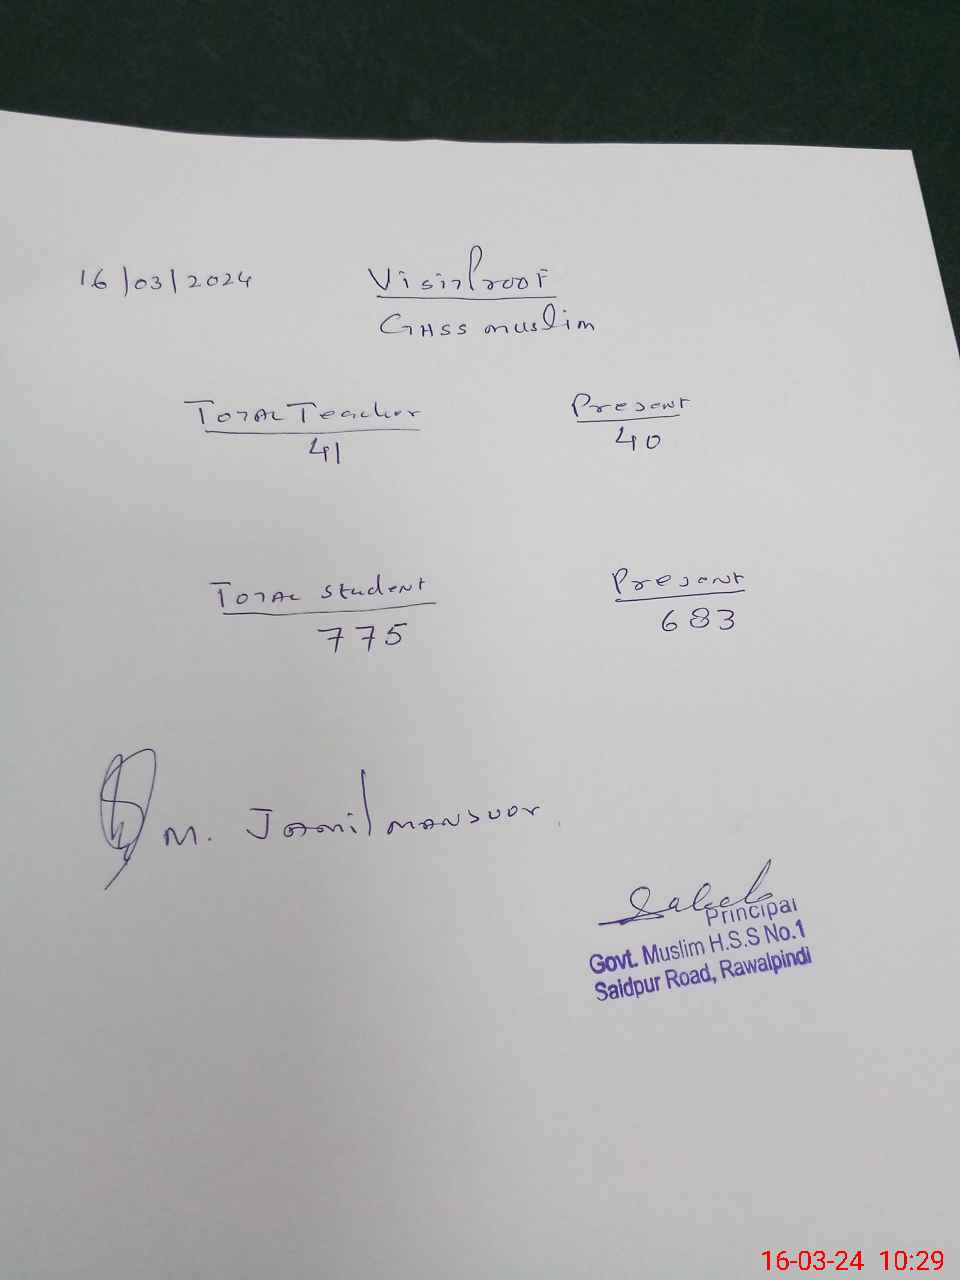 16/03/2024 Visit Proof
GHSS muslim
Total Teacher Present
41 40
Total Student Present
775 683
M. Jamil mansoor
Principal
Govt. Muslim H.S.S No.1
Saidpur Road, Rawalpindi
16-03-24 10:29